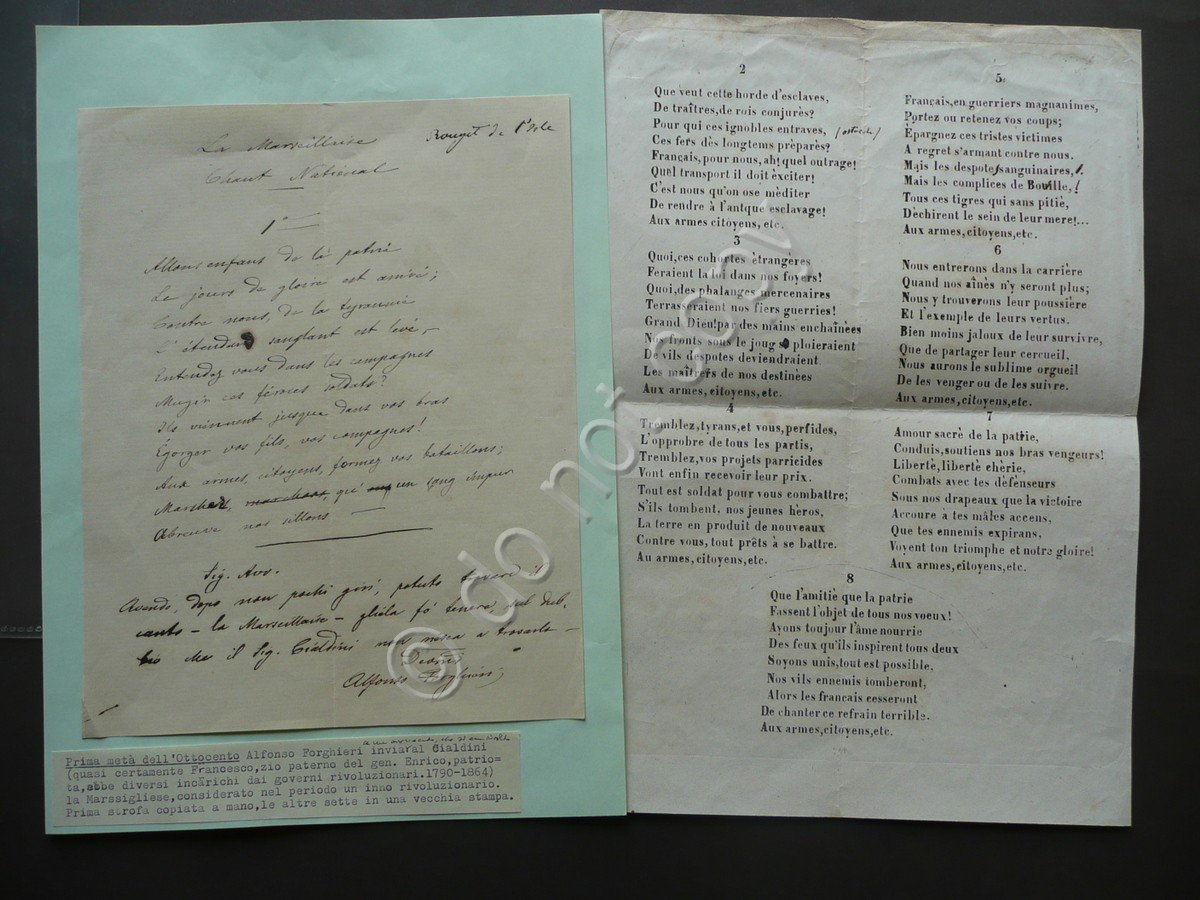 La Marseillaise
Rouget de l'Isle
Chant National
1º
Allons enfans de la patrie
Le jours de gloire est arrivé;
Contre nous, de la tyrannie
L'étendard sanglant est levé,
Entendez vous dans les campagnes
Mugir ces féroces soldats?
Ils viennent jusque dans vos bras
Égorger vos fils, vos compagnes!
Aux armes, citoyens, formez vos bataillons;
Marchez, marchons, qu' un sang impur
Abreuve nos sillons.
Sig. Avv.
Avendo, dopo non pochi giri, potuto trovare il
canto - la Marseillaise - gliela fo tenere, sul dub,
bio che il Sig. Cialdini non riesca a trovarla -
Alfonso Forghieri
a un avvocato,
Prima metà dell'Ottocento Alfonso Forghieri invia al Cialdini
(quasi certamente Francesco,zio paterno del gen. Enrico,patrio=
ta,ebbe diversi incàrichi dai governi rivoluzionari.1790-1864)
la Marssigliese,considerato nel periodo un inno rivoluzionario.
Prima strofa copiata a mano,le altre sette in una vecchia stampa.
2
Que veut cette horde d'esclaves,
De traîtres,de rois conjurès?
Pour qui ces ignobles entraves,
Ces fers dès longtems prèparès?
Français,pour nous,ah! quel outrage!
Quel transport il doit èxciter!
C'est nous qu'on ose mèditer
De rendre à l'antque esclavage!
Aux armes citoyens, etc.
3
Quoi,ces cohortes ètrangères
Feraient la loi dans nos foyers!
Quoi,des phalanges mercenaires
Terrasseraient nos fiers guerries!
Grand Dieu!par des mains enchaînèes
Nos fronts sous le joug se ploieraient
De vils despotes deviendraient
Les maîtrers de nos destinèes
Aux armes,citoyens,etc.
4
Tremblez,tyrans,et vous,perfides,
L'opprobre de tous les partis,
Tremblez,vos projets parricides
Vont enfin recevoir leur prix.
Tout est soldat pour vous combattre;
S'ils tombent, nos jeunes hèros,
La terre en produit de nouveaux
Contre vous,tout prêts à se battre.
Au armes,citoyens,etc.
5.
Français,en guerriers magnanimes,
Portez ou retenez vos coups;
Èpargnez ces tristes victimes
A regret s'armant contre nous.
Mais les despotes sanguinaires,
Mais les complices de Bouille,
Tous ces tigres qui sans pitiè,
Dèchirent le sein de leur mere!...
Aux armes,citoyens,etc.
6
Nous entrerons dans la carrière
Quand nos aînès n'y seront plus;
Nous y trouverons leur poussière
Et l'exemple de leurs vertus.
Bien moins jaloux de leur survivre,
Que de partager leur cercueil,
Nous aurons le sublime orgueil
De les venger ou de les suivre.
Aux armes,citoyens,etc.
7
Amour sacrè de la patrie,
Conduis,soutiens nos bras vengeurs!
Libertè,libertè chèrie,
Combats avec tes dèfenseurs
Sous nos drapeaux que la victoire
Accoure à tes mâles accens,
Que tes ennemis expirans,
Voyent ton triomphe et notre gloire!
Aux armes,citoyens,etc.
8
Que l'amitiè que la patrie
Fassent l'objet de tous nos voeux!
Ayons toujour l'âme nourrie
Des feux qu'ils inspirent tous deux
Soyons unis,tout est possible,
Nos vils ennemis tomberont,
Alors les francais cesseront
De chanter ce refrain terrible.
Aux armes,citoyens,etc.
© do not copy